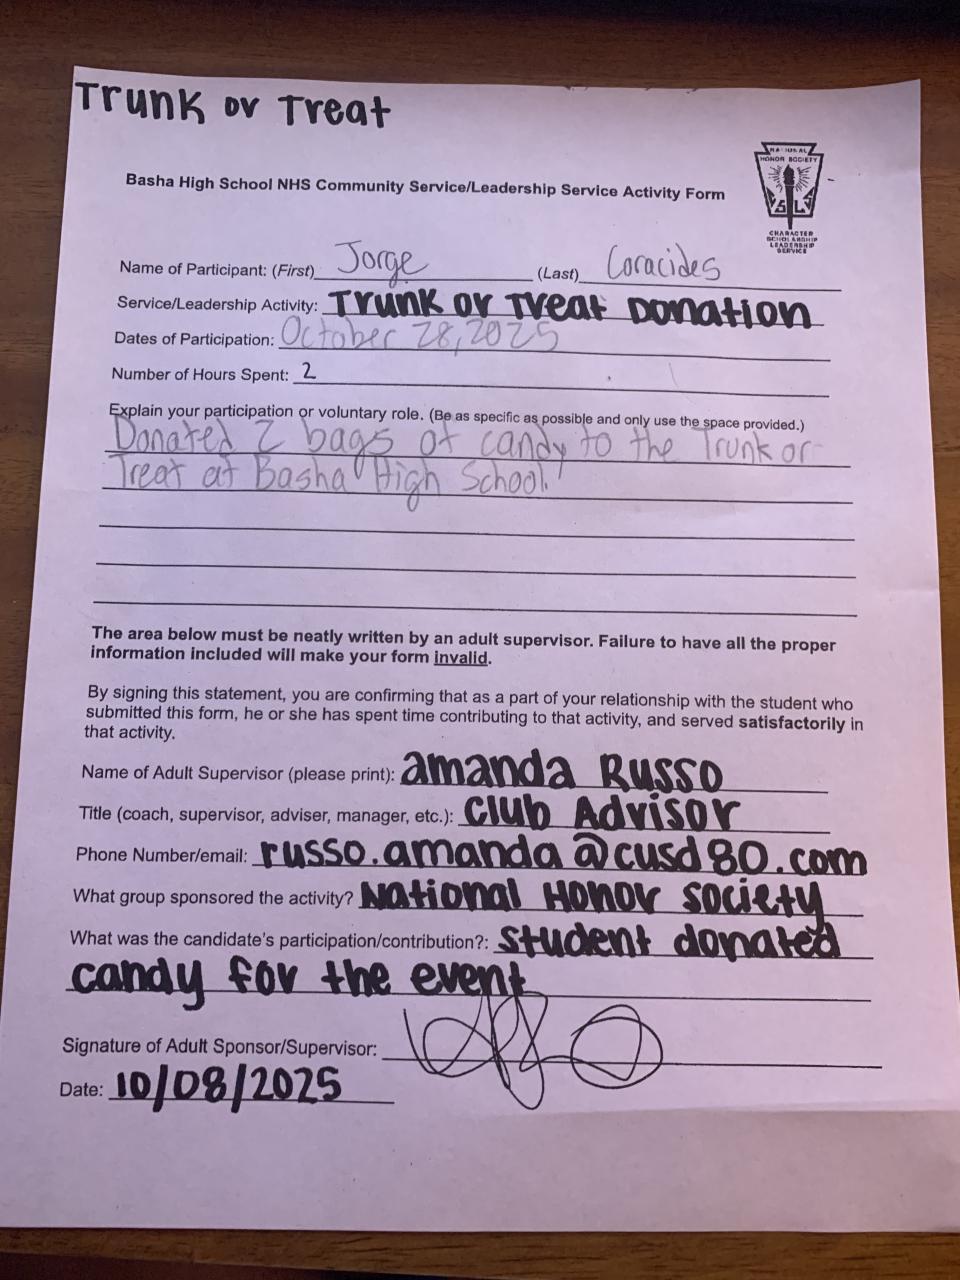 Trunk or Treat
NATIONAL
HONOR SOCIETY
S L S
CHARACTER
SCHOLARSHIP
LEADERSHIP
SERVICE
Basha High School NHS Community Service/Leadership Service Activity Form
Name of Participant: (First) Jorge (Last) Coracides
Service/Leadership Activity: Trunk or Treat Donation
Dates of Participation: October 28, 2025
Number of Hours Spent: 2
Explain your participation or voluntary role. (Be as specific as possible and only use the space provided.)
Donated 2 bags of candy to the Trunk or
Treat at Basha High School.
The area below must be neatly written by an adult supervisor. Failure to have all the proper
information included will make your form invalid.
By signing this statement, you are confirming that as a part of your relationship with the student who
submitted this form, he or she has spent time contributing to that activity, and served satisfactorily in
that activity.
Name of Adult Supervisor (please print): amanda Russo
Title (coach, supervisor, adviser, manager, etc.): Club Advisor
Phone Number/email: russo.amanda@cusd80.com
What group sponsored the activity? National Honor Society
What was the candidate's participation/contribution?: student donated
candy for the event
Signature of Adult Sponsor/Supervisor:
Date: 10/08/2025